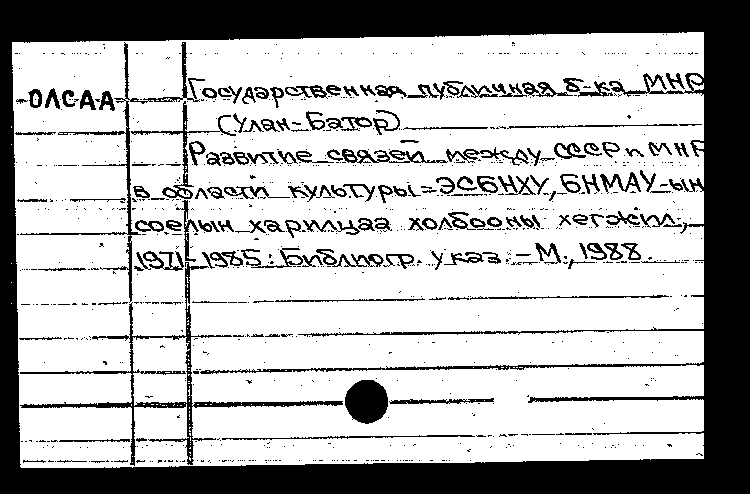 ОЛСАА
Государственная публичная б-ка МНР
(Улан-Батор)
Развитие связей между СССР и МНР
в области культуры = ЭСБНХУ, БНМАУ-ын
соелын харилцаа холбооны хегжил,
1971-1985: Библиогр. указ. - М., 1988.